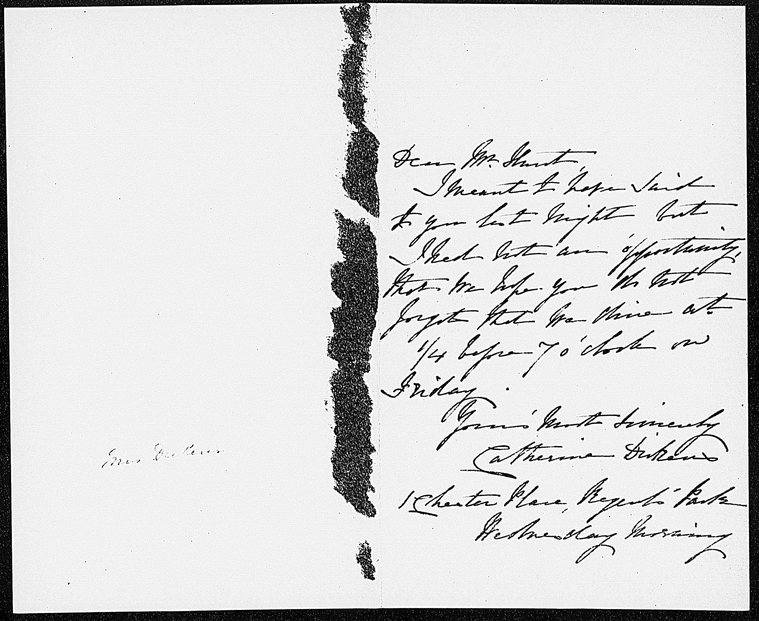 Mrs Dickens
Dear Mr. Hunt,
I meant to have said
to you last night but
I had not an opportunity,
that we hope you do not
forget that we dine at
1/4 before 7 o'clock on
Friday.
Yours most sincerely
Catherine Dickens
1 Chester Place, Regent's Park
Wednesday Morning